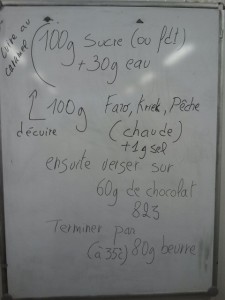 cuire au
caramel
100g sucre (ou fdt)
+30g eau
100g Faro, Kriek, Pêche
décuire
(chaude)
+1g sel
ensuite verser sur
60g de chocolat
823
Terminer par
(à 35°C) 80g beurre